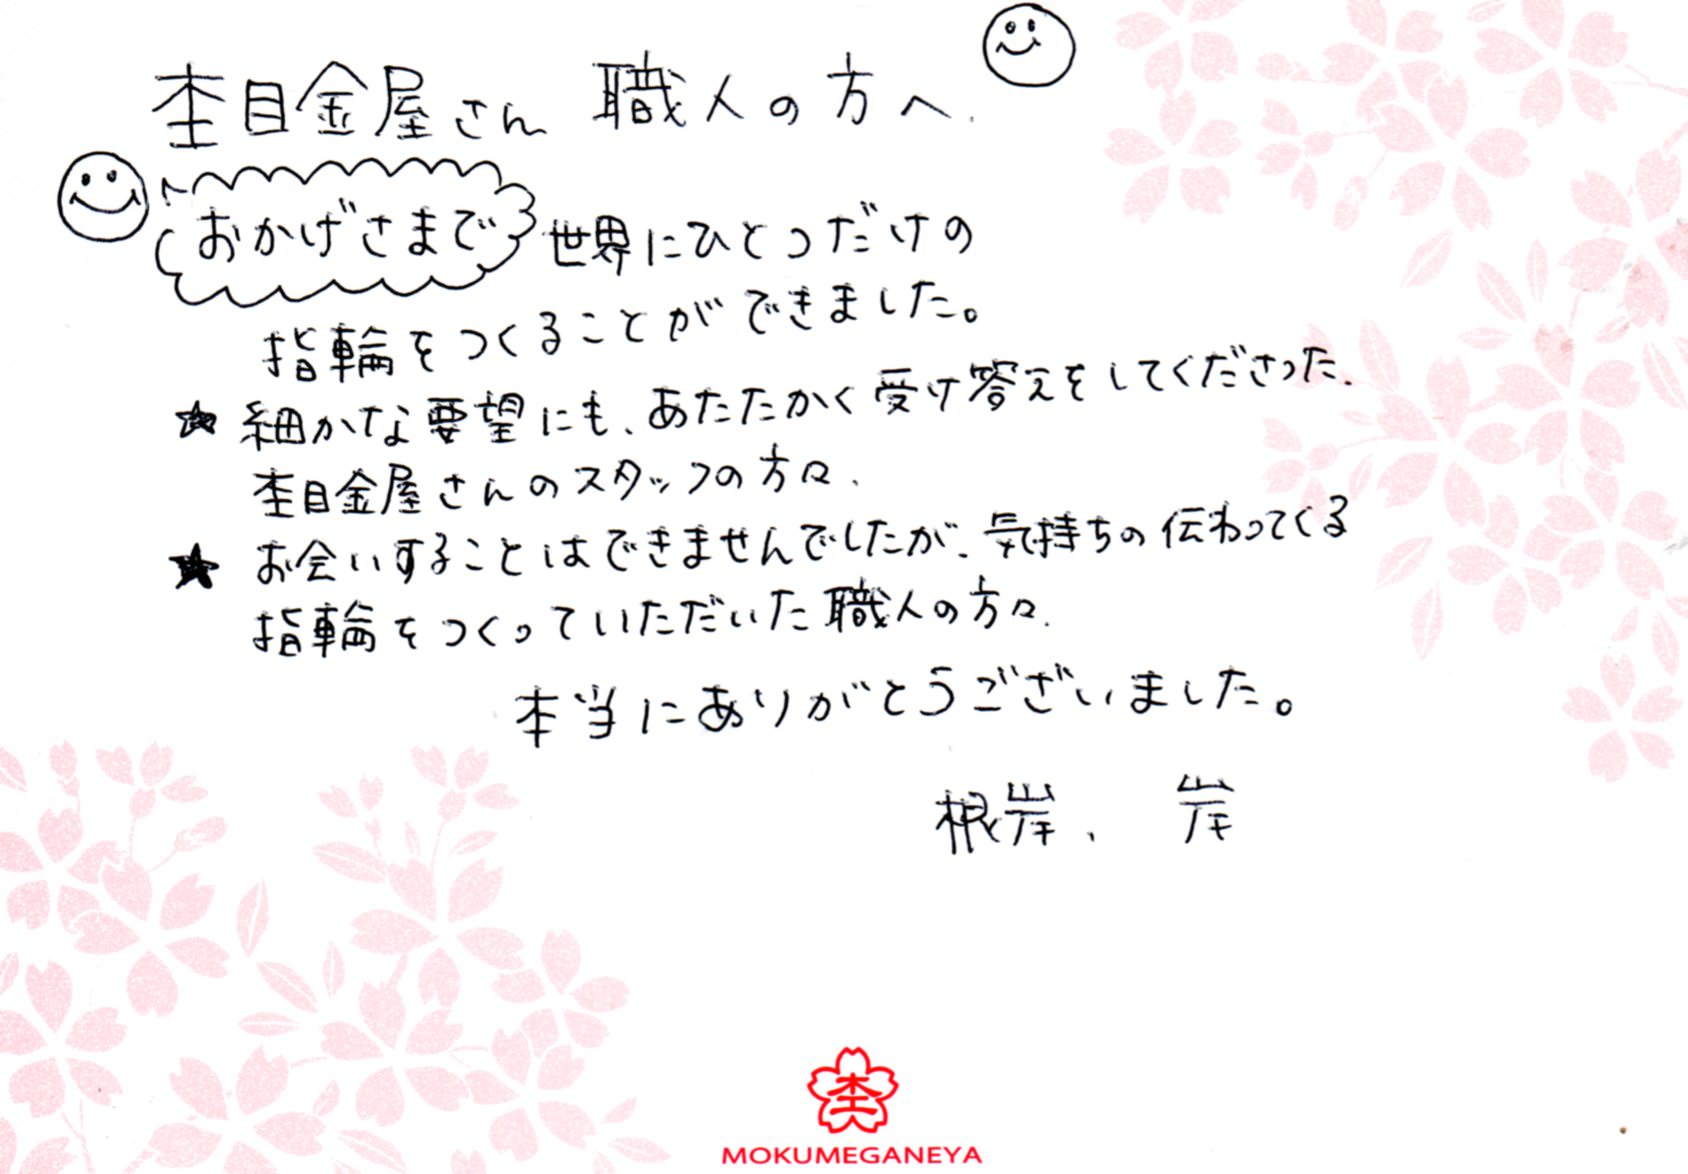 杢目金屋さん 職人の方へ.
おかげさまで 世界にひとつだけの
指輪をつくることができました。
★ 細かな要望にも、あたたかく受け答えをしてくださった、
杢目金屋さんのスタッフの方々、
★ お会いすることはできませんでしたが、気持ちの伝わってくる
指輪をつくっていただいた職人の方々、
本当にありがとうございました。
根岸、 岸
杢
MOKUMEGANEYA